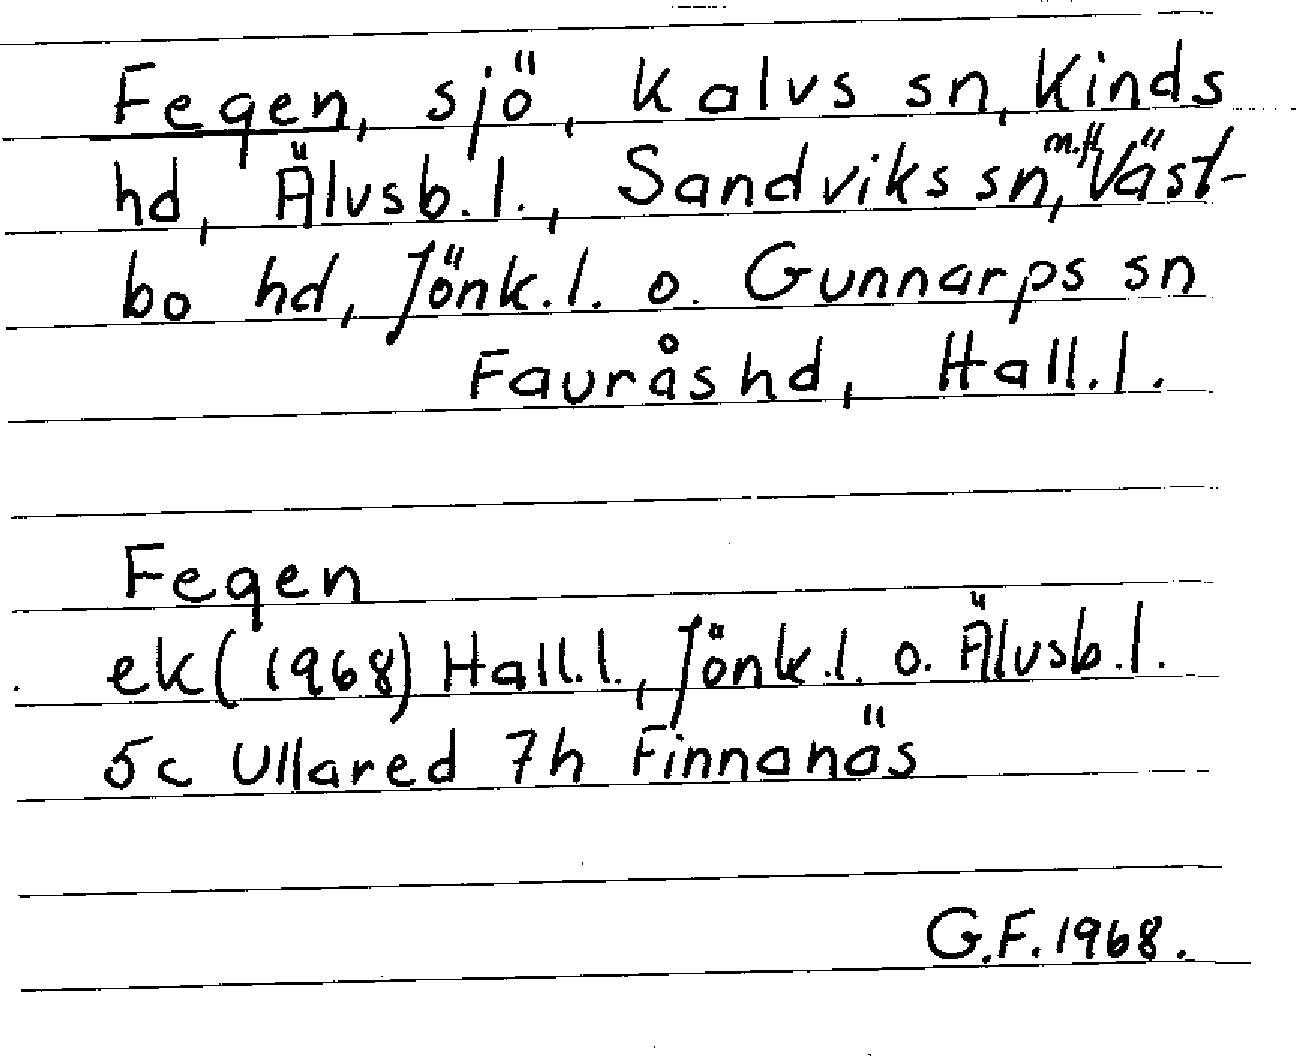 Fegen, sjö, Kalvs sn, Kinds
hd, Älvsb.l., Sandviks sn, m.fl. Väst-
bo hd, Jönk.l. o. Gunnarps sn
Faurås hd, Hall.l.
Fegen
ek (1968) Hall.l., Jönk.l. o. Älvsb.l.
5c Ullared 7h Finnanäs
G.F. 1968.